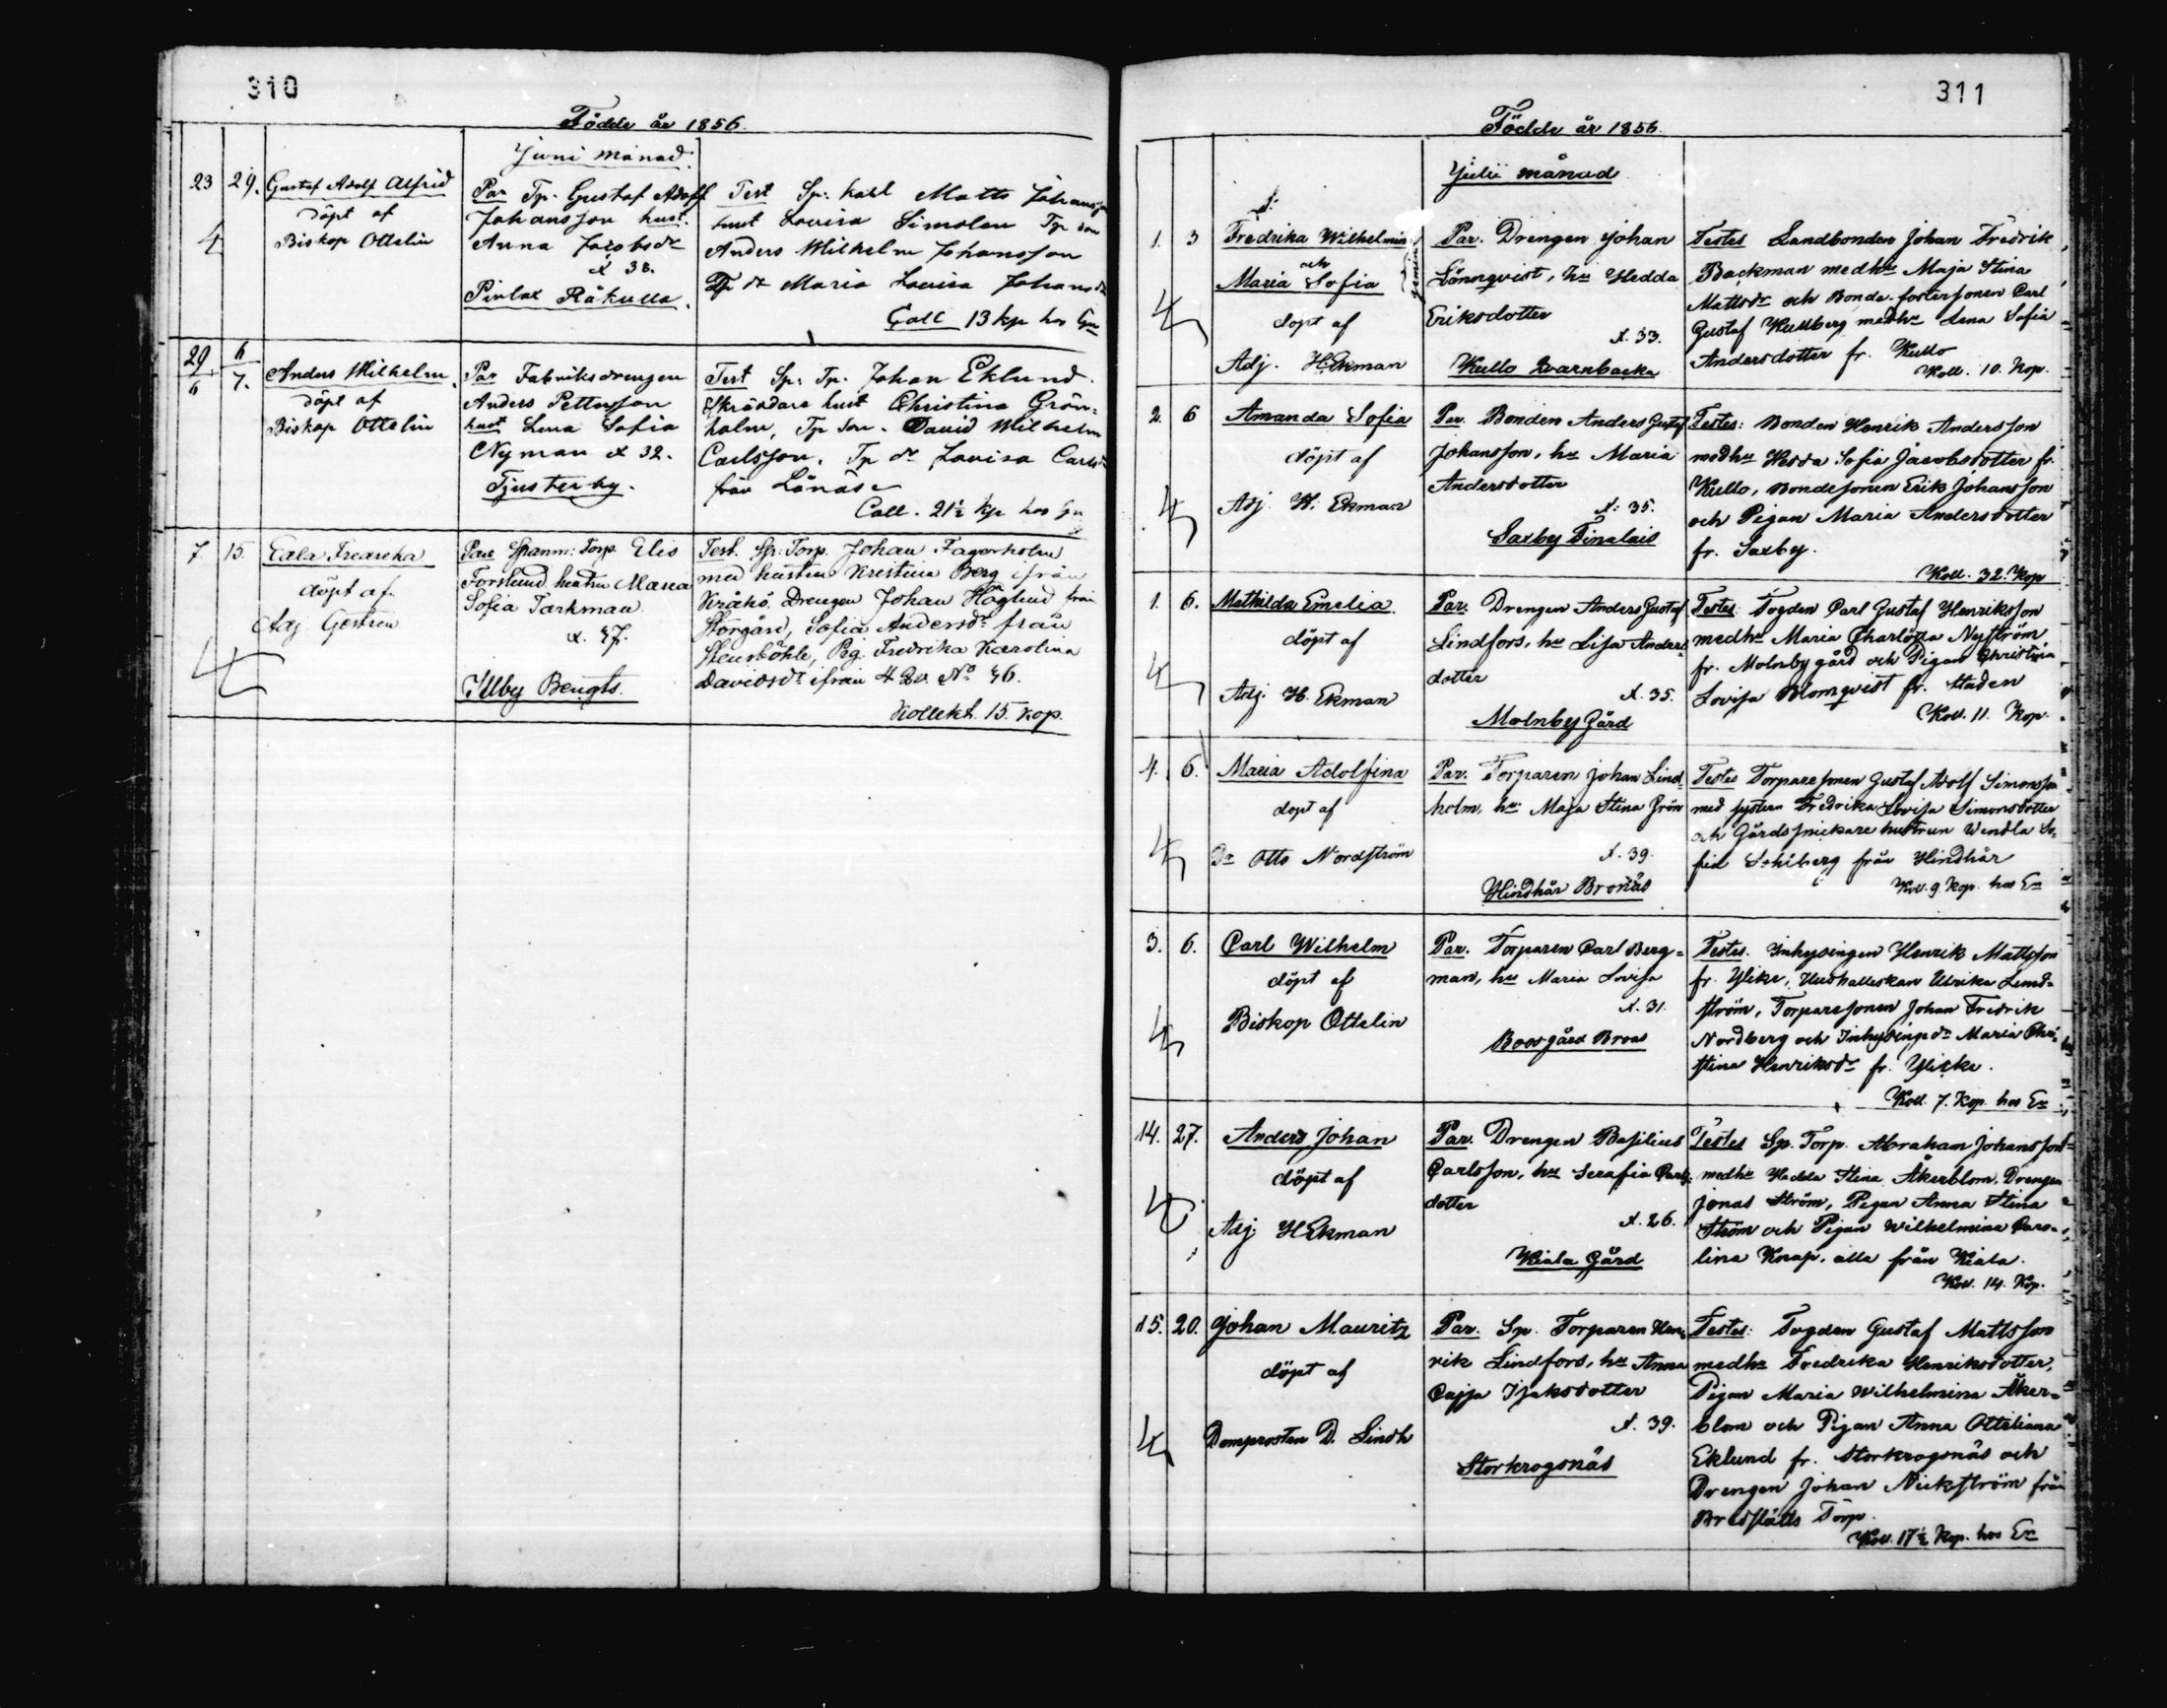 310
Födde år 1856.
Juni månad.
23 29. Gustaf Adolf Alfrid
döpt af
Biskop Ottelin
Par Tp. Gustaf Adolf
Johansson hust.
Anna Jacobsdr
x 38.
Pirlax Råkulla.
Test Sp: karl Matts Johansson
hust Lovisa Simolen Tp son
Anders Wilhelm Johansson
Tp dr Maria Lovisa Johansdr
Coll 13 kp hos
29/6 6/7. Anders Wilhelm
döpt af
Biskop Ottelin
Par Fabriksdrengen
Anders Pettersson
hust Lena Sofia
Nyman x 32.
Tjusterby.
Test Sp: Tp. Johan Eklund.
Skräddare hust Christina Grön-
holm, Tp son. David Wilhelm
Carlsson. Tp dr Lovisa Carlsdr
från Lånäs
Coll. 21½ kp hos
7. 15. Edla Fredrika
döpt af
Adj Gestrin
Par Spanm: Torp. Elis
Forslund hustru Maria
Sofia Tarkman.
x. 47.
Illby Bengts.
Test. Sp: Torp. Johan Fagerholm
med hustru Kristina Berg ifrån
Kråkö. Drengen Johan Höglund från
Storgård, Sofia Andersdr från
Stensböhle, Pig. Fredrika Karolina
Davidsdr ifrån No 46.
Kollekt. 15. kop.
311
Födde år 1856.
Julii månad
1. 3 Fredrika Wilhelmina
och
Maria Sofia
döpt af
Adj. H Ekman
Par. Drengen Johan
Lönnqvist, hu Hedda
Eriksdotter
x. 33.
Kullo Qvarnbacka
Testes Landbonden Johan Fredrik
Backman medhu Maja Stina
Mattsdr och Bonde-fostersonen Carl
Gustaf Kullberg medhu Lena Sofia
Andersdotter fr. Kullo
Koll. 10. Kop.
2. 6 Amanda Sofia
döpt af
Adj. H: Ekman
Par. Bonden Anders Gustaf
Johansson, hu Maria
Andersdotter
x: 35.
Saxby Finalais
Testes: Bonden Henrik Andersson
medhu Hedda Sofia Jacobsdotter fr.
Kullo, Bondesonen Erik Johansson
och Pigan Maria Andersdotter
fr. Saxby.
Koll. 32. Kop
1. 6. Mathilda Emelia.
döpt af
Adj. H. Ekman
Par. Drengen Anders Gustaf
Lindfors, hu Lisa Anders-
dotter
x. 35.
Molnby Gård
Testes: Fogden Carl Gustaf Henriksson
medhu Maria Charlotta Nyström
fr. Molnby gård och Pigan Christina
Lovisa Blomqvist fr. Staden
Koll. 11. Kop.
4. 6. Maria Adolfina
döpt af
Dr Otto Nordström
Par. Torparen Johan Lind-
holm, hu: Maja Stina Grön
x. 39.
Hindhår Bronäs
Testes Torparesonen Gustaf Adolf Simonsson
med systern Fredrika Lovisa Simonsdotter
och Gårdssnickare hustrun Wendla So-
fia från Hindhår
Koll. 9. Kop. hos En
3. 6. Carl Wilhelm
döpt af
Biskop Ottelin
Par. Torparen Carl Berg-
man, hu Maria Lovisa
x. 31
Boosgård Broas
Testes. Inhysingen Henrik Mattsson
fr. Ylike, Hushållerskan Ulrika Lind-
ström, Torparesonen Johan Fredrik
Nordberg och Inhysingedr Maria Chri-
stina Henriksdr fr. Ylicke.
Koll. 7. Kop. hos En
14. 27. Anders Johan
döpt af
Adj H Ekman
Par. Drengen Basilius
Carlsson, hu Serafia Carls-
dotter
x. 26.
Kiala Gård
Testes Sp. Torp. Abraham Johansson
medhu Hedda Stina Åkerblom, Drengen
Jonas Ström, Pigan Anna Stina
Ström och Pigan Wilhelmina Caro-
lina Knap, alla från Kiala.
Koll. 14. Kp.
15. 20. Johan Mauritz
döpt af
Domprosten D. Lindh
Par. Sp. Torparen Hen-
rik Lindfors, hu Anna
Cajsa Isaksdotter
x. 39.
Storkrogsnäs
Testes: Fogden Gustaf Mattsson
medhu Fredrika Henriksdotter,
Pigan Maria Wilhelmina Åker-
blom och Pigan Anna Otteliana
Eklund fr. Storkrogsnäs och
Drengen Johan Nickström från
Torp.
Koll. 17½ Kop. hos En